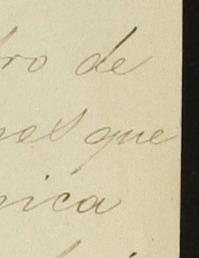 tro de
nos que
nica